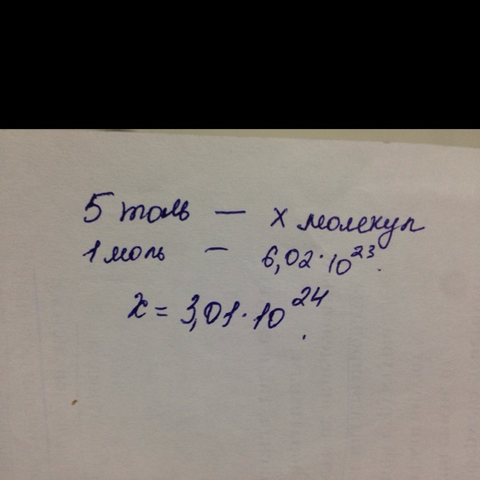 5 моль — x молекул
1 моль — 6,02·10²³.
x = 3,01·10²⁴.